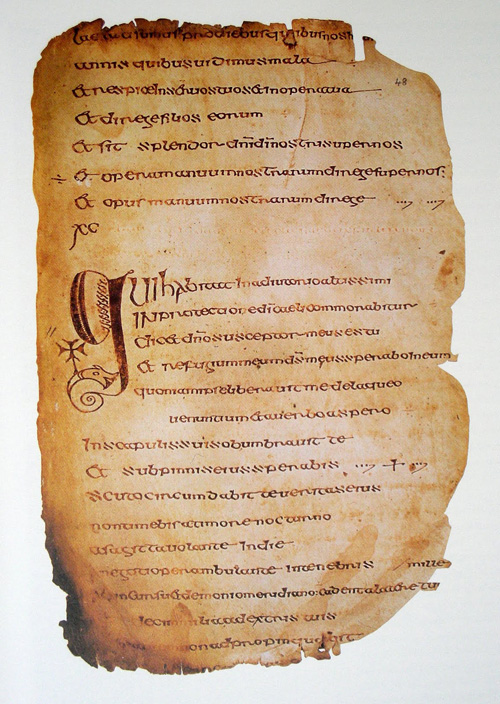 laetati sumus pro diebus quibus nos
annis quibus uidimus mala
Et respice in seruos tuos et in opera tua
Et dirige filios eorum
Et sit splendor dn̄i dī nostri super nos
Et opera manuum nostrarum dirige super nos:
Et opus manuum nostrarum dirige
XC
Qui habitat in adiutorio altissimi
IN protectione dī caeli commorabitur
Dicet dn̄o susceptor meus es tu
Et refugium meum ds̄ meus sperabo in eum
quoniam ipse liberauit me de laqueo
uenantium et a uerbo aspero
In scapulis suis obumbrauit te
Et sub pinnis eius sperabis
Scuto circumdabit te ueritas eius
non timebis a timore nocturno
a sagitta uolante in die
negotio perambulante in tenebris / mille
incursu et demonio meridiano: cadent a latere tuo
decem milia a dextris tuis
non adpropinquabit
48